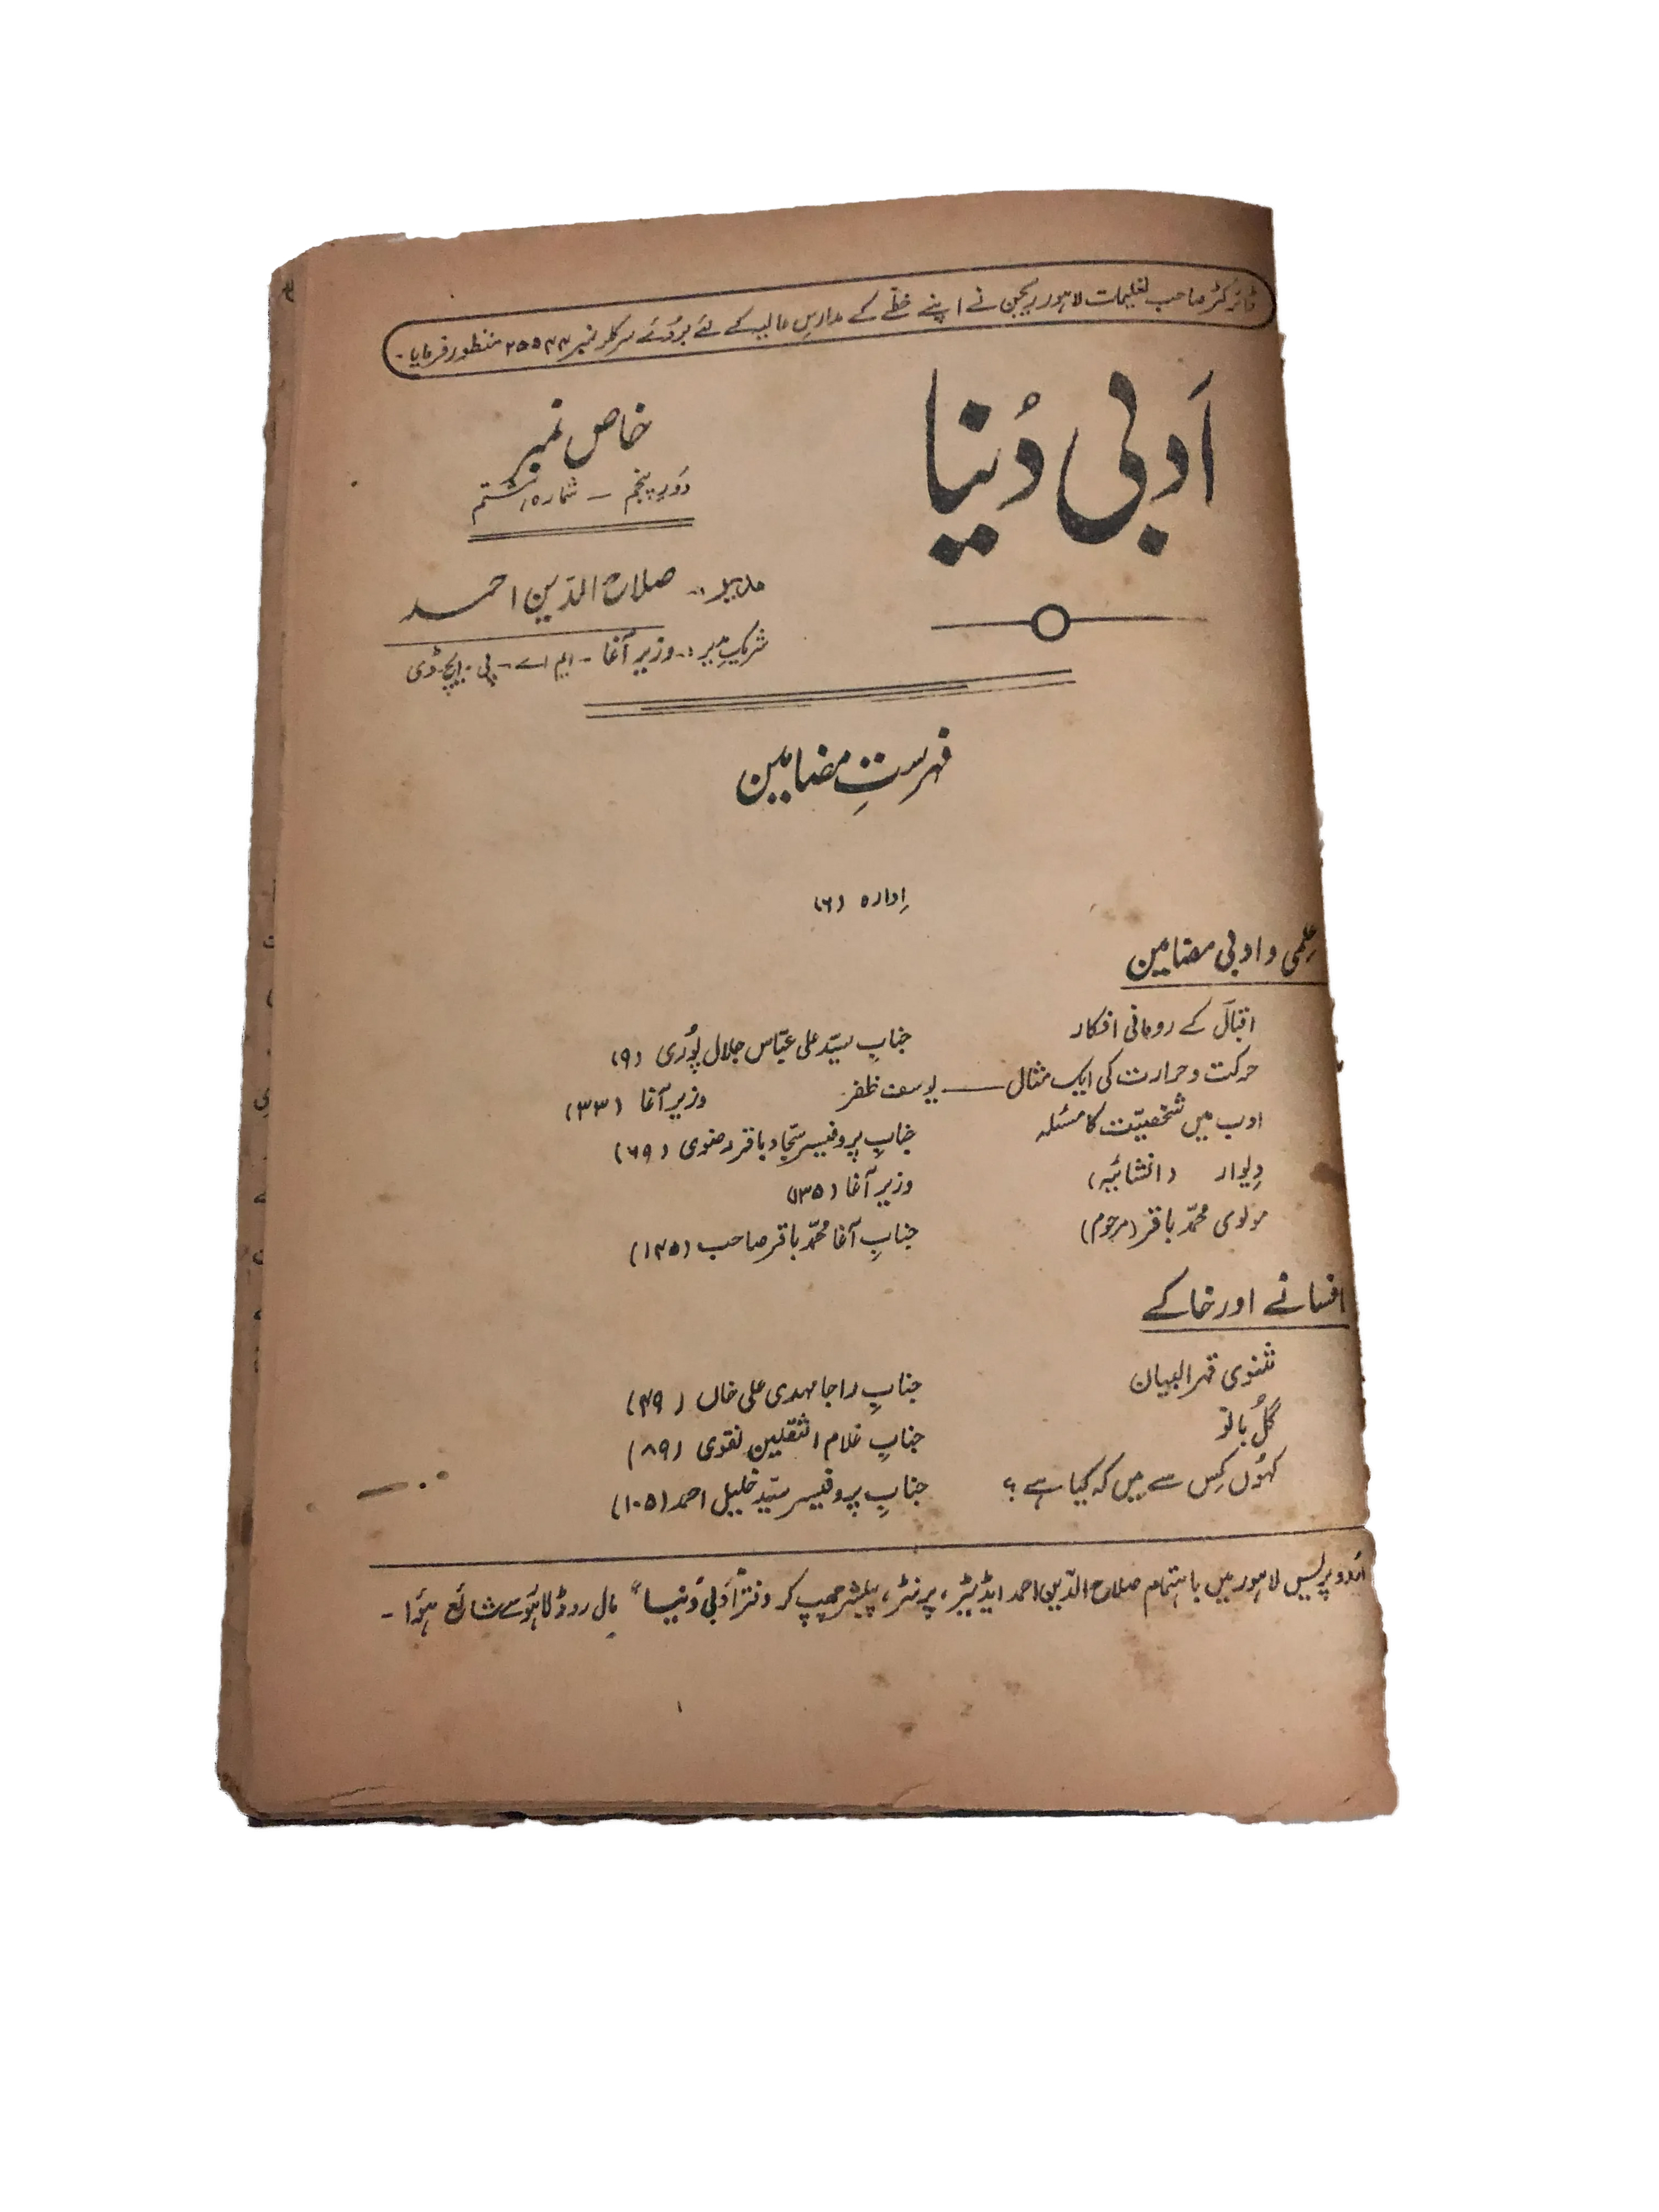 ڈائرکٹر صاحب تعلیمات لاہور ریجن نے اپنے خطّے کے مدارسِ عالیہ کے لئے بروئے سرکلر نمبر ۲۵۵۴۴ منظور فرمایا۔
اَدبی دُنیا
خاص نمبر
دَورِ پنجم — شمارہ ہشتم
مدیر:۔ صلاح الدّین احمد
شریکِ مدیر:۔ وزیر آغا۔ ایم اے۔ پی۔ ایچ۔ ڈی
فہرستِ مضامین
اِدارہ (۶)
عِلمی و ادبی مضامین
اقبالؔ کے رومانی افکار جنابِ سیّد علی عبّاس جلال پُوری (۹)
حرکت و حرارت کی ایک مثال — یوسف ظفر وزیر آغا (۳۳)
ادب میں شخصیّت کا مسئلہ جنابِ پروفیسر سجّاد باقر رضوی (۶۹)
دِیوار (انشائیہ) وزیر آغا (۱۳۵)
مولوی محمّد باقر (مرحوم) جنابِ آغا محمّد باقر صاحب (۱۴۵)
افسانے اور خاکے
مثنوی قہر البیان جنابِ راجا مہدی علی خاں (۴۹)
گُل بانو جنابِ غلام الثقلین نقوی (۸۹)
کہُوں کِس سے میں کہ کیا ہے؟ جنابِ پروفیسر سیّد خلیل احمد (۱۰۵)
اُردو پریس لاہور میں باہتمام صلاح الدّین احمد ایڈیٹر، پرنٹر، پبلشر چھپ کر دفتر "اَدبی دُنیا" مال روڈ لاہور سے شائع ہؤا۔
۱